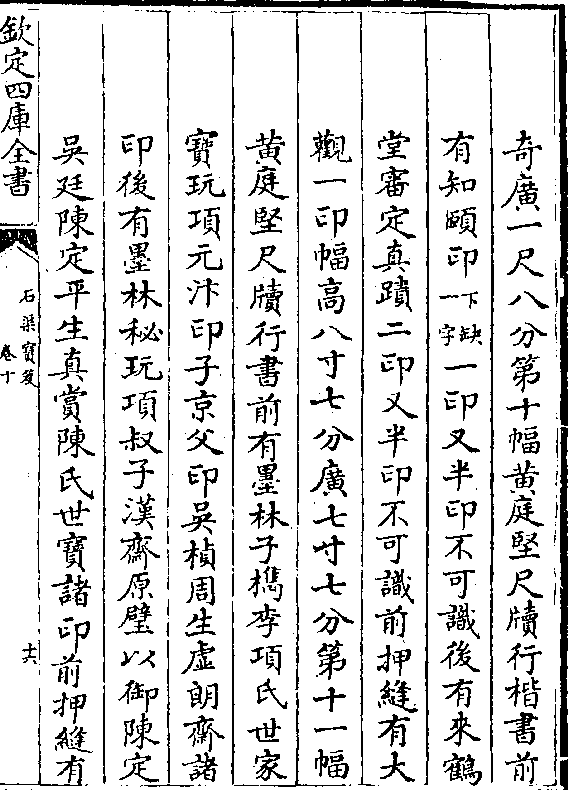 奇廣一尺八分第十幅黄庭堅尺牘行楷書前
有知頤印一下缺一字一印又半印不可識後有來鶴
堂審定真蹟二印又半印不可識前押縫有大
觀一印幅高八寸七分廣七寸七分第十一幅
黄庭堅尺牘行書前有墨林子檇李項氏世家
寳玩項元汴印子京父印吳楨周生虚朗齋諸
印後有墨林秘玩項叔子漢齋原璧以御陳定
吳廷陳定平生真賞陳氏世寳諸印前押縫有
欽定四庫全書
石渠寳笈
卷十
六